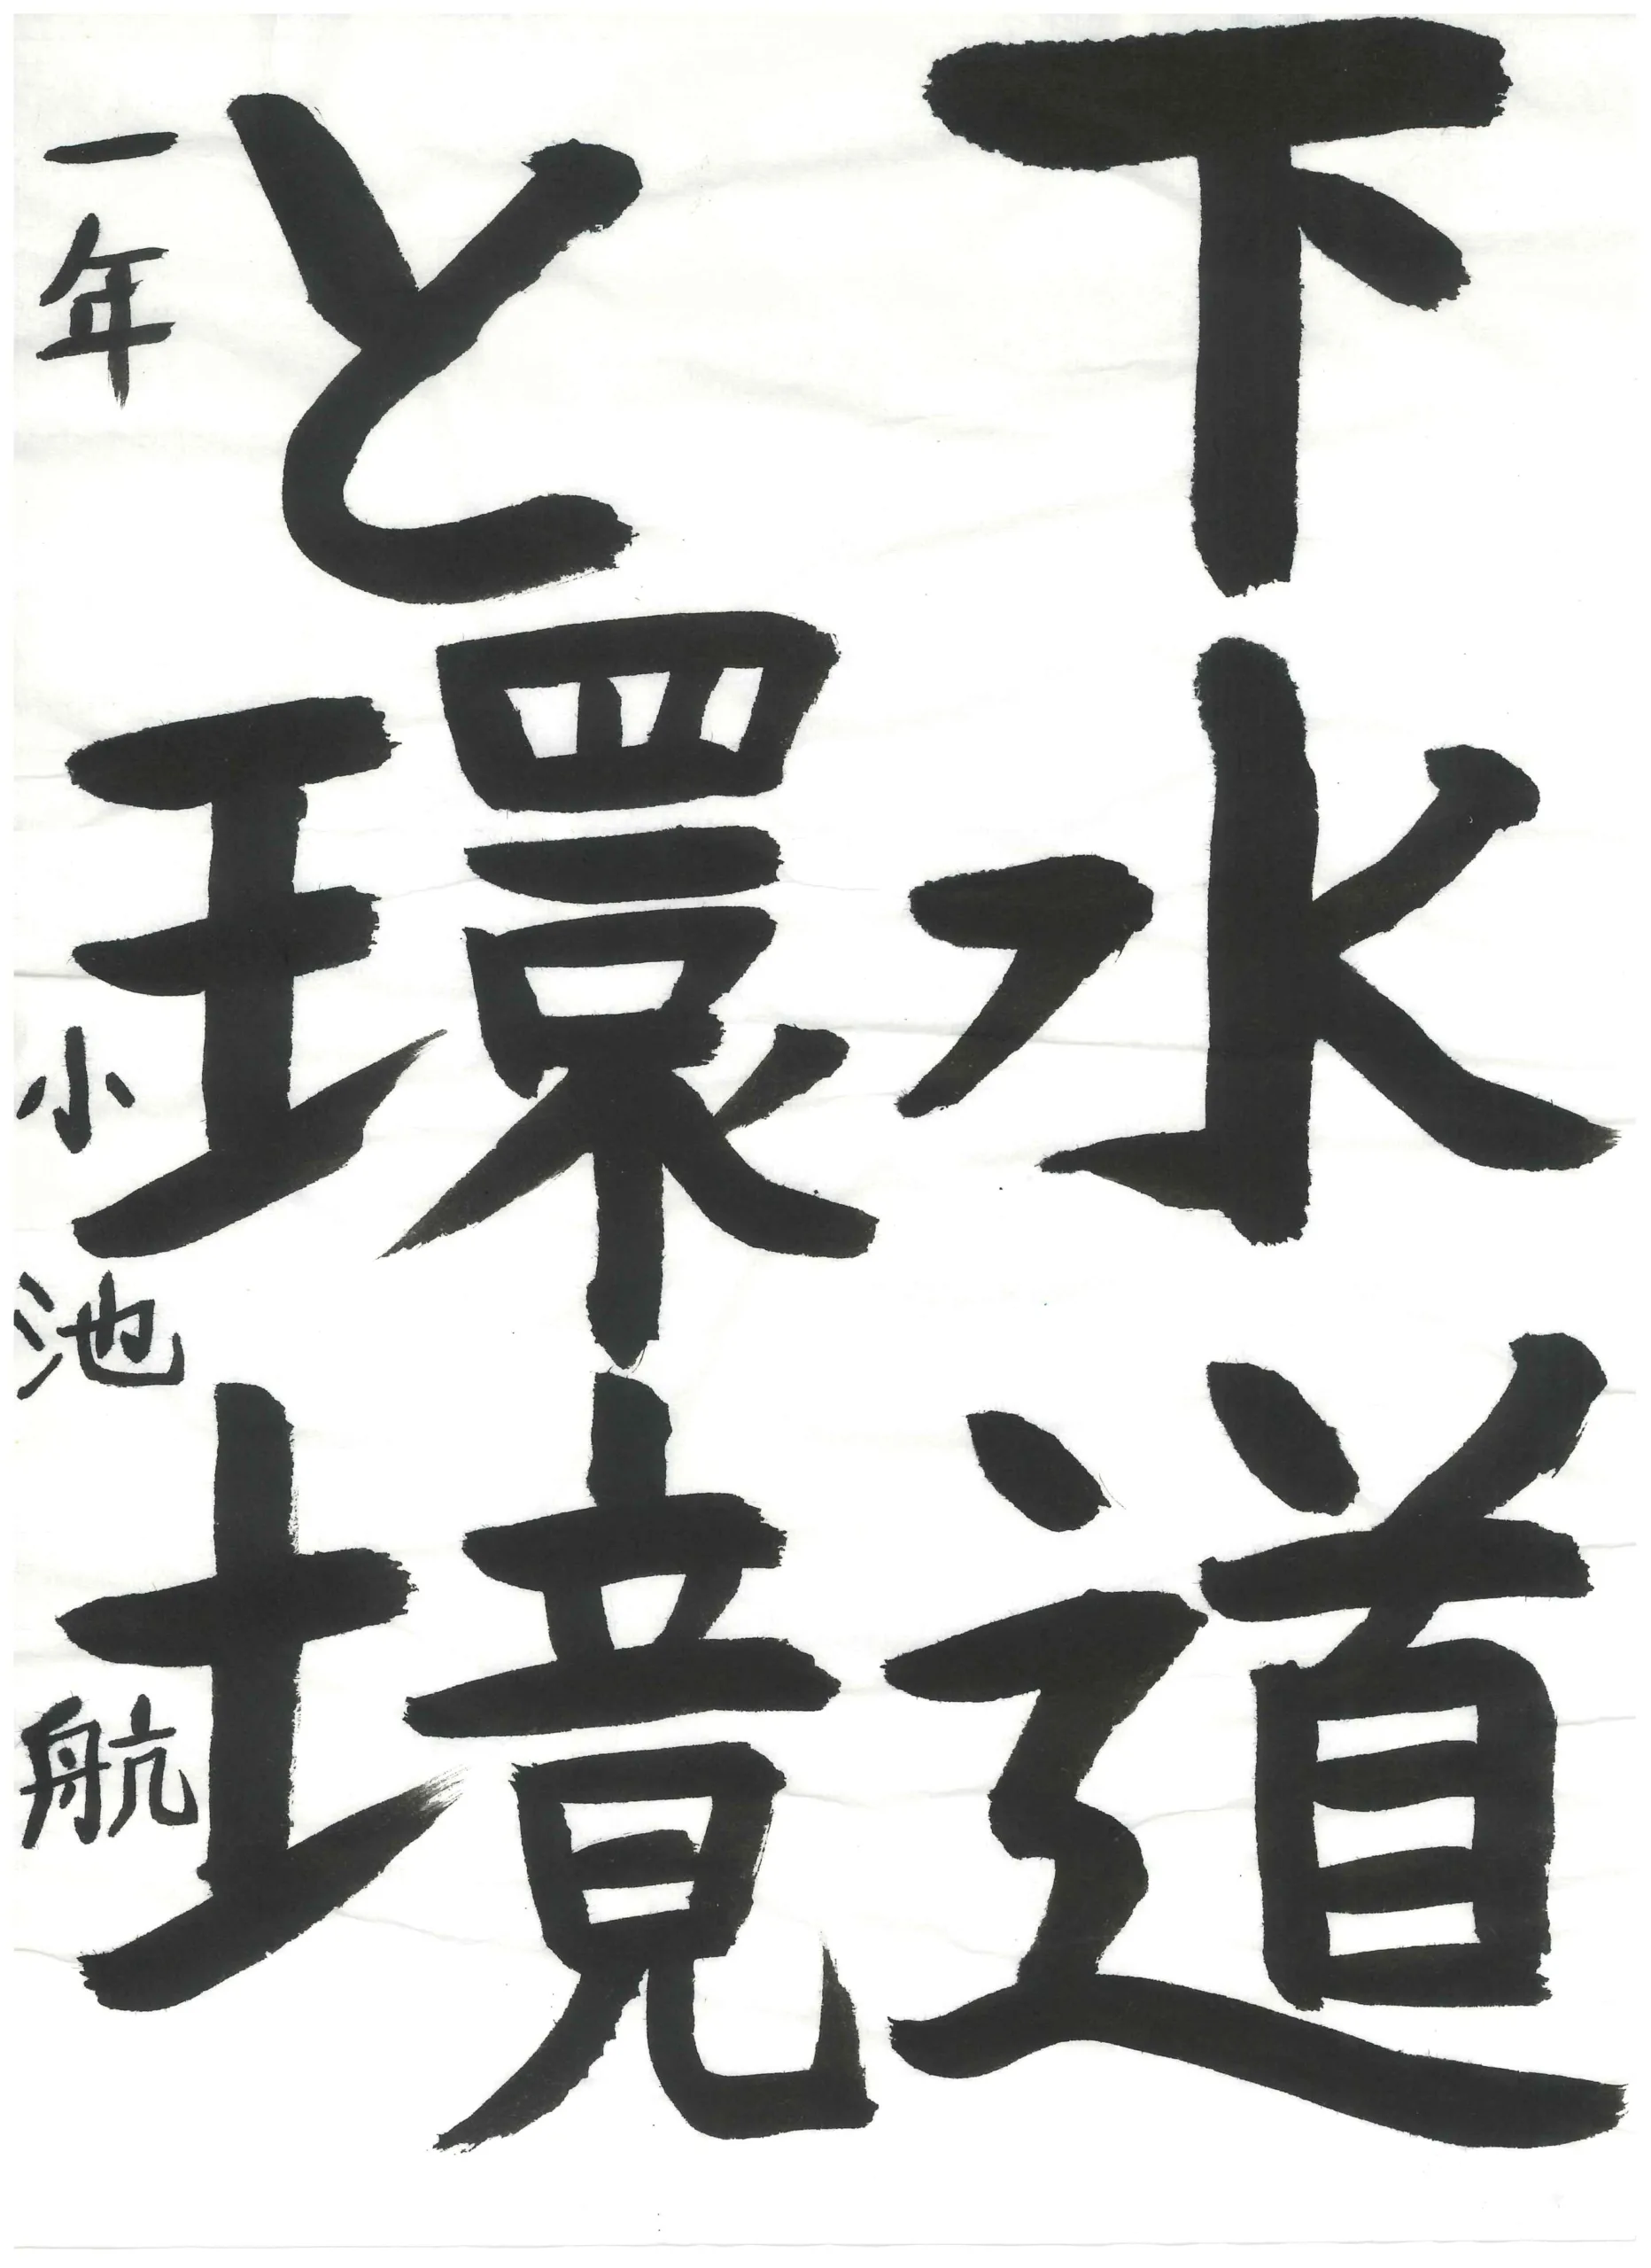 下水道
と環境
一年 小池 航